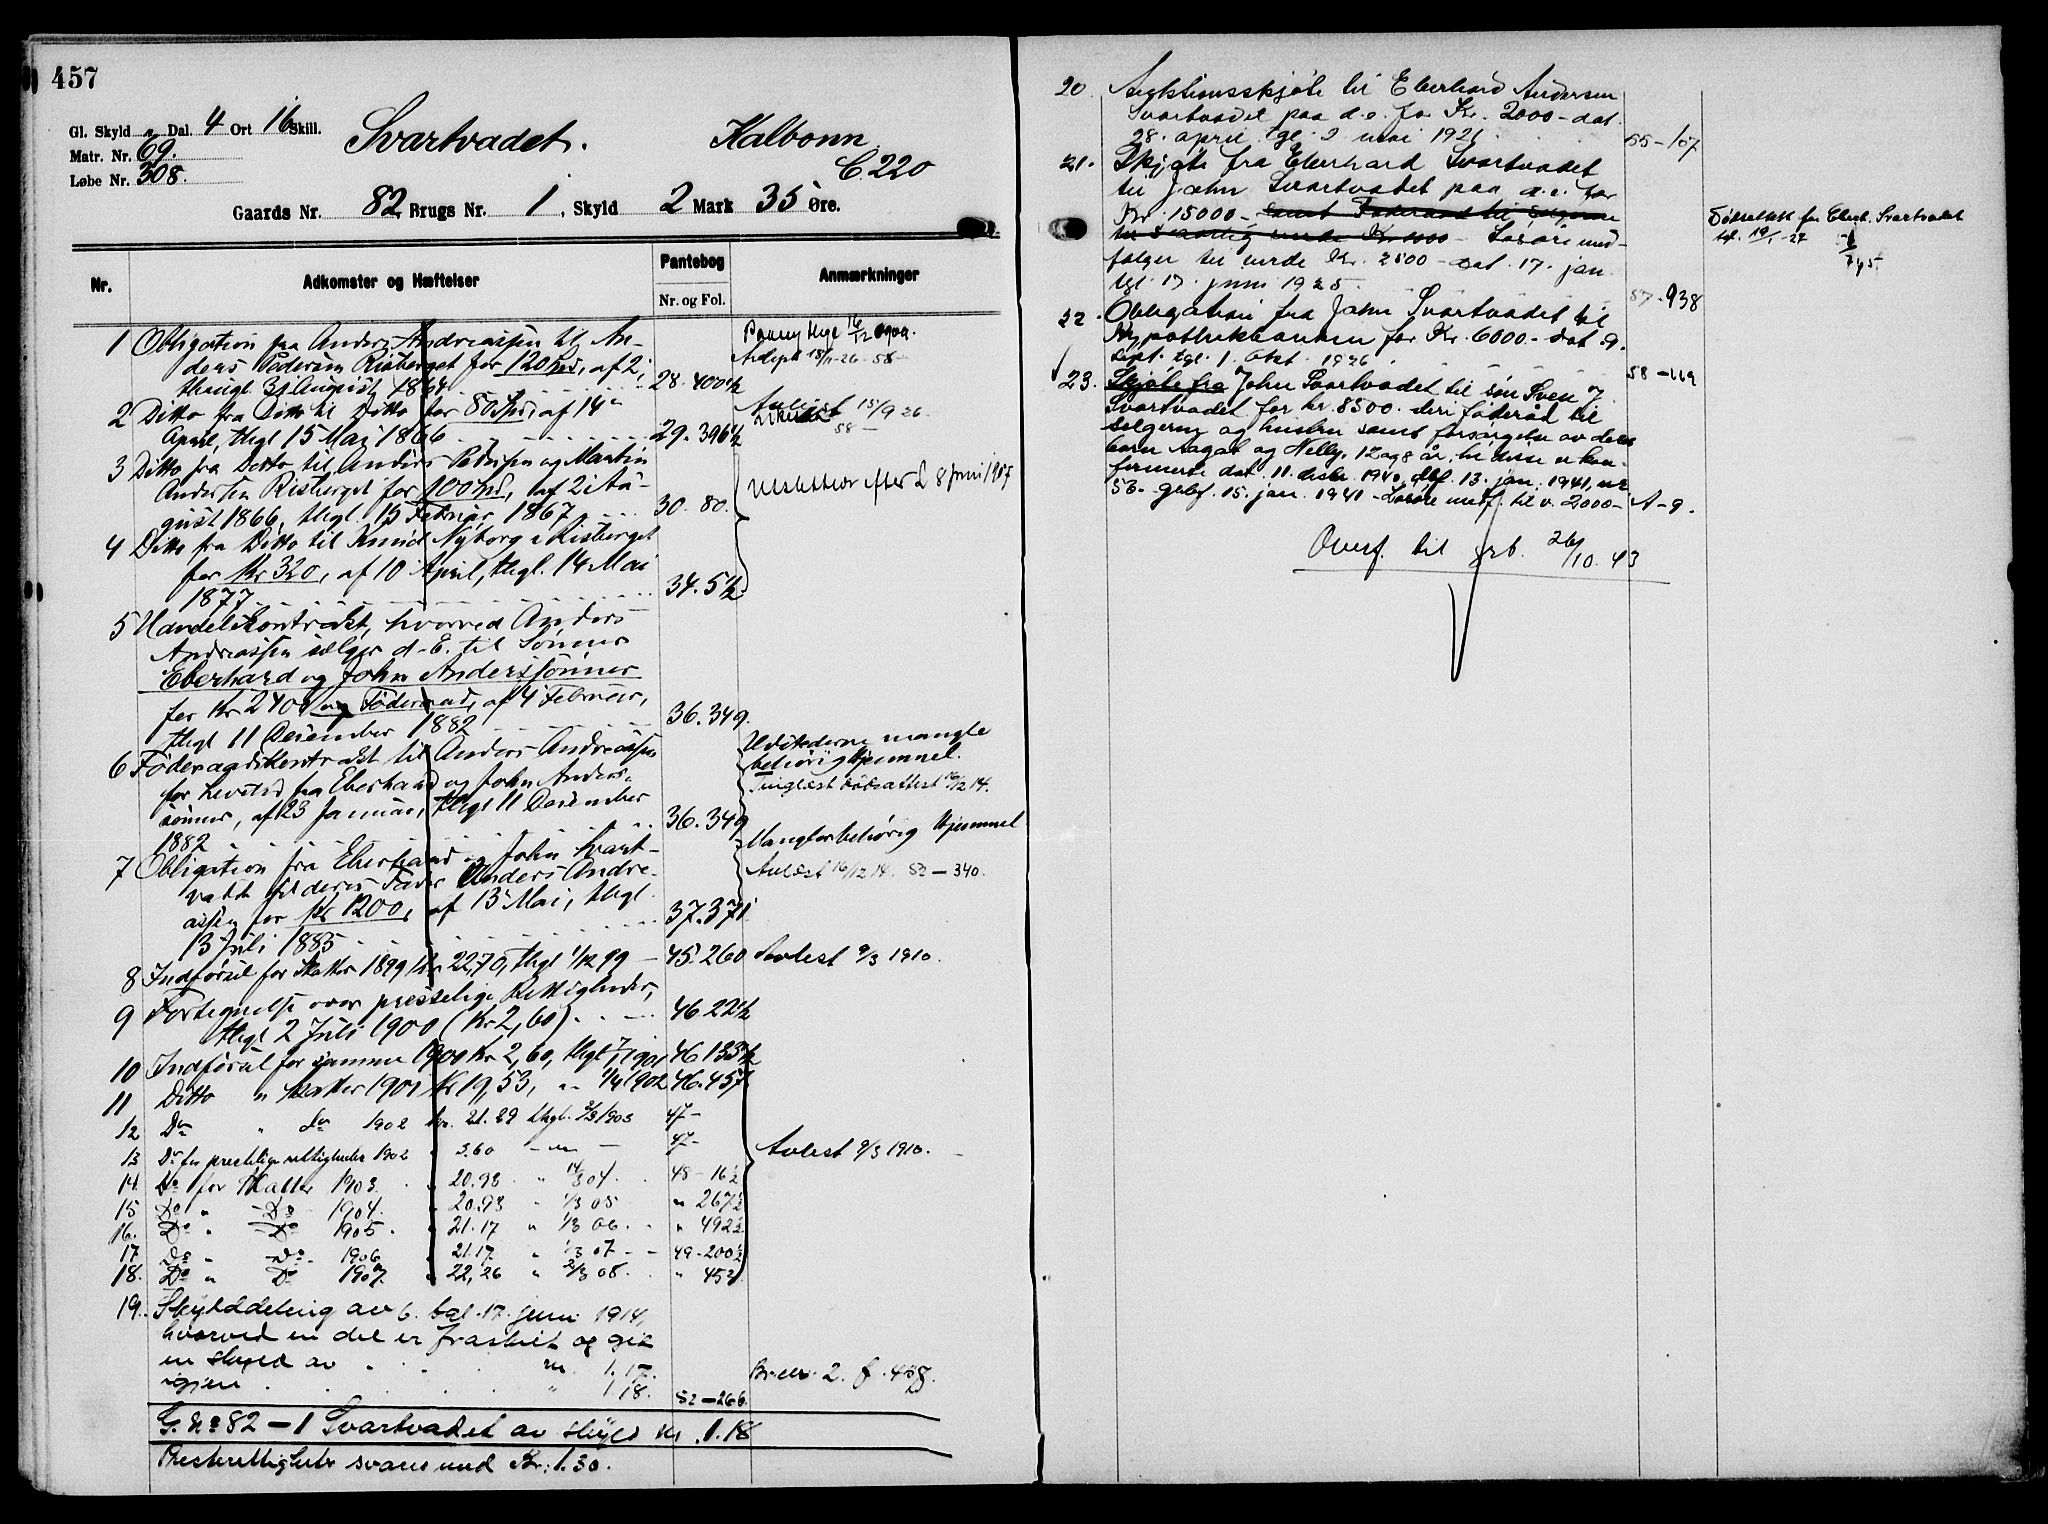 457
Gl. Skyld " Dal. 4 Ort 16 Skill.
Matr. Nr. 69.
Løbe Nr. 308.
Svartvadet.
Kalbonn
C. 220
Gaards Nr. 82, Brugs Nr. 1, Skyld 2 Mark 35 Øre.
Nr.
Adkomster og Hæftelser
Pantebog
Nr. og Fol.
Anmærkninger
1 Obligation fra Anders Andreassen til An-
ders Pedersen Risberget for 120 Spd, af 2
thingl. 31 August 1864 28. 400 1/2
Avlyst 18/11-26 - 58 -
2 Ditto fra Ditto til Ditto for 80 Spd. af 14de
April, thgl 15 Mai 1866 29. 396 1/2
Avlyst 15/9 26.
58 -
3 Ditto fra Ditto til Anders Pedersen og Martin
Andersen Risberget for 100 Spd, af 2 Au-
gust 1866, thgl. 15 Februar 1867 30. 80.
Udslettet efter L 8 Juni 1907
4 Ditto fra Ditto til Knud Nyborg i Risberget
for Kr 320, af 10 April, thgl. 14 Mai
1877 34. 5 1/2
5 Handelskontrakt, hvorved Anders
Andreassen sælger d. E. til Sønner
Eberhard og John Anderssønner
for Kr 240 og Føderaad, af 4 Februar,
thgl 11 December 1882 36. 349.
6 Føderaadskontrakt til Anders Andreassen
for Levetid fra Eberhard og John Anders-
sønner, af 23 Januar, thgl 11 December
1882 36. 349
Udstederne mangle
behørig Hjemmel.
Tinglæst dödsattest 16/12 14.
7 Obligation fra Eberhard og John Svart-
vadet til deres Fader Anders Andre-
assen for Kr 1200, af 13 Mai, thgl
13 Juli 1885 37. 371
Mangler behørig Hjemmel
Avlæst 16/12 14. 52 - 340.
8 Indførsel for Skatter 1899 Kr 22,70, thgl 1/12 99 - 45. 260 Avlest 9/3 1910.
9 Fortegnelse over presselige Rettigheder,
thgl 2 Juli 1900 (Kr 2,60) 46. 22 1/2
10 Indførsel for samme 1900 Kr 2,60, thgl 7/1 1901 46. 133 1/2
11 Ditto " Skatter 1901 Kr 19,53, " 1/4 1902 46. 457
12 Do " do 1902 kr. 21.29 thgl. 2/3 1903 47 -
13 Do for prestelige rettigheder 1902 " 3.60 - " - 47 -
Avlest 9/3 1910.
14 Do for Skatter 1903. " 20.93 " 14/3 04. 48 - 16 1/2
15 Do " Do 1904. " 20.93 " 1/3 05 " 267 1/2
16. Do " Do 1905. " 21.17 " 1/3 06. " 492 1/2
17 Do " Do 1906 " 21.17. " 1/3 07 - 49 - 200 1/2
18. Do " Do 1907. " 22,26 " 2/3 08. " 452
19. Skylddeling av 6. tgl. 17. juni 1914,
hvorved en del er fraskilt og git
en skyld av m. 1.17.
igjen " 1.18. 52 - 266.
Br. nr. 2. f. 458.
G. No 82 - 1 Svartvadet av skyld M. 1.18
Presterettigheter svares med Kr: 1.30.
20 Auktionsskjøte til Eberhard Andersen
Svartvadet paa d. e. for Kr. 2000 - dat.
28. april tgl. 2 mai 1921 55 - 107
21. Skjøte fra Eberhard Svartvadet
til John Svartvadet paa d. e. for
Kr. 15000 - samt Føderaad til selgeren
til 5 aarlig verdi Kr. 1000 - Løsøre med-
følger til verdi Kr. 2500 - dat. 17. jan.
tgl. 17. juni 1925. 57 - 938
Dödsattest for Eberh. Svartvadet
tgl. 19/1 - 27
22. Obligation fra John Svartvadet til
Hypotekbanken for Kr. 6000 - dat. 9.
sept. tgl. 1. Okt. 1926. 58 - 119
23. Skjöte fra John Svartvadet til søn Sven J
Svartvadet for kr. 8500. deri föderåd til
selgeren og hustru samt forsörgelse av deres
barn Aagot og Nelly, 12 og 8 år, til disse er kon-
firmerte dat. 11. desbr. 1940, dbf. 13. jan. 1941, nr
56 - gebf. 15. jan. 1941 - Lösöre medf. til v. 2000 - A - 9.
Overf. til grb. 26/10. 43